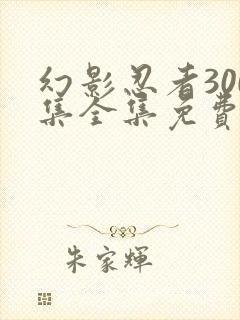 幻影忍者300
集全集免费
朱家輝